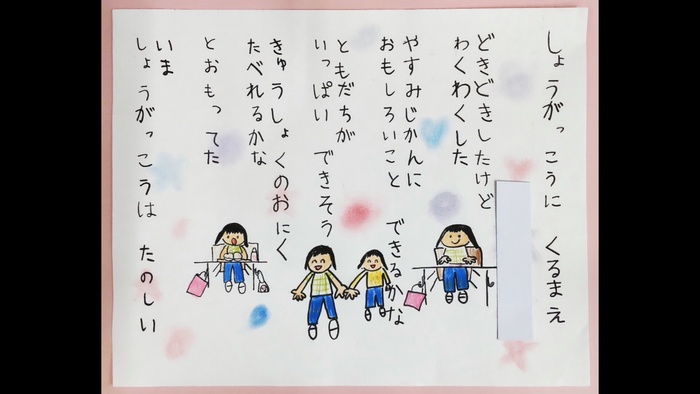 しょうがっこうに くるまえ
どきどきしたけど
わくわくした
やすみじかんに
おもしろいこと
できるかな
ともだちが
いっぱい できそう
きゅうしょくのおにく
たべれるかな
とおもってた
いま
しょうがっこうは たのしい